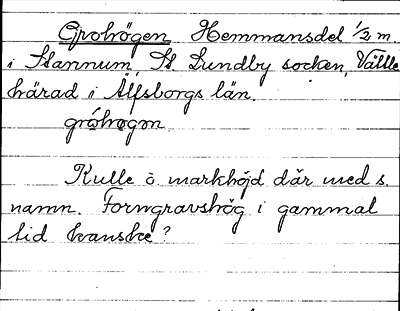 Grohögen Hemmansdel 1/2 m.
i Stannum, St. Lundby socken, Vättle
härad i Älfsborgs län.
gróhögon
Kulle o markhöjd där med s.
namn. Forngravshög i gammal
tid kanske?